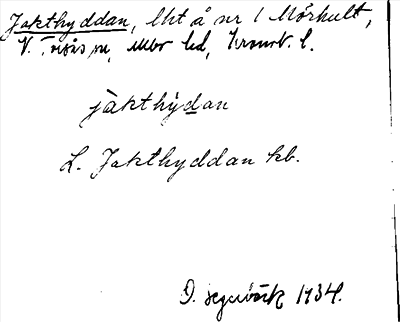 Jakthyddan, lht å nr 1 Mörhult,
V. Torsås sn, Allbo hd, Kronob. l.
jàkthỳdan
L. Jakthyddan kb.
D. Segerbäck 1934.